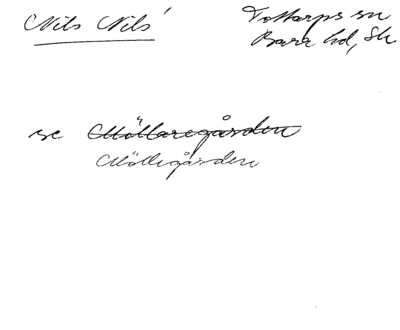 Nils Nils'
Tottarps sn
Bara hd, Sk
se Möllaregården
Möllegården